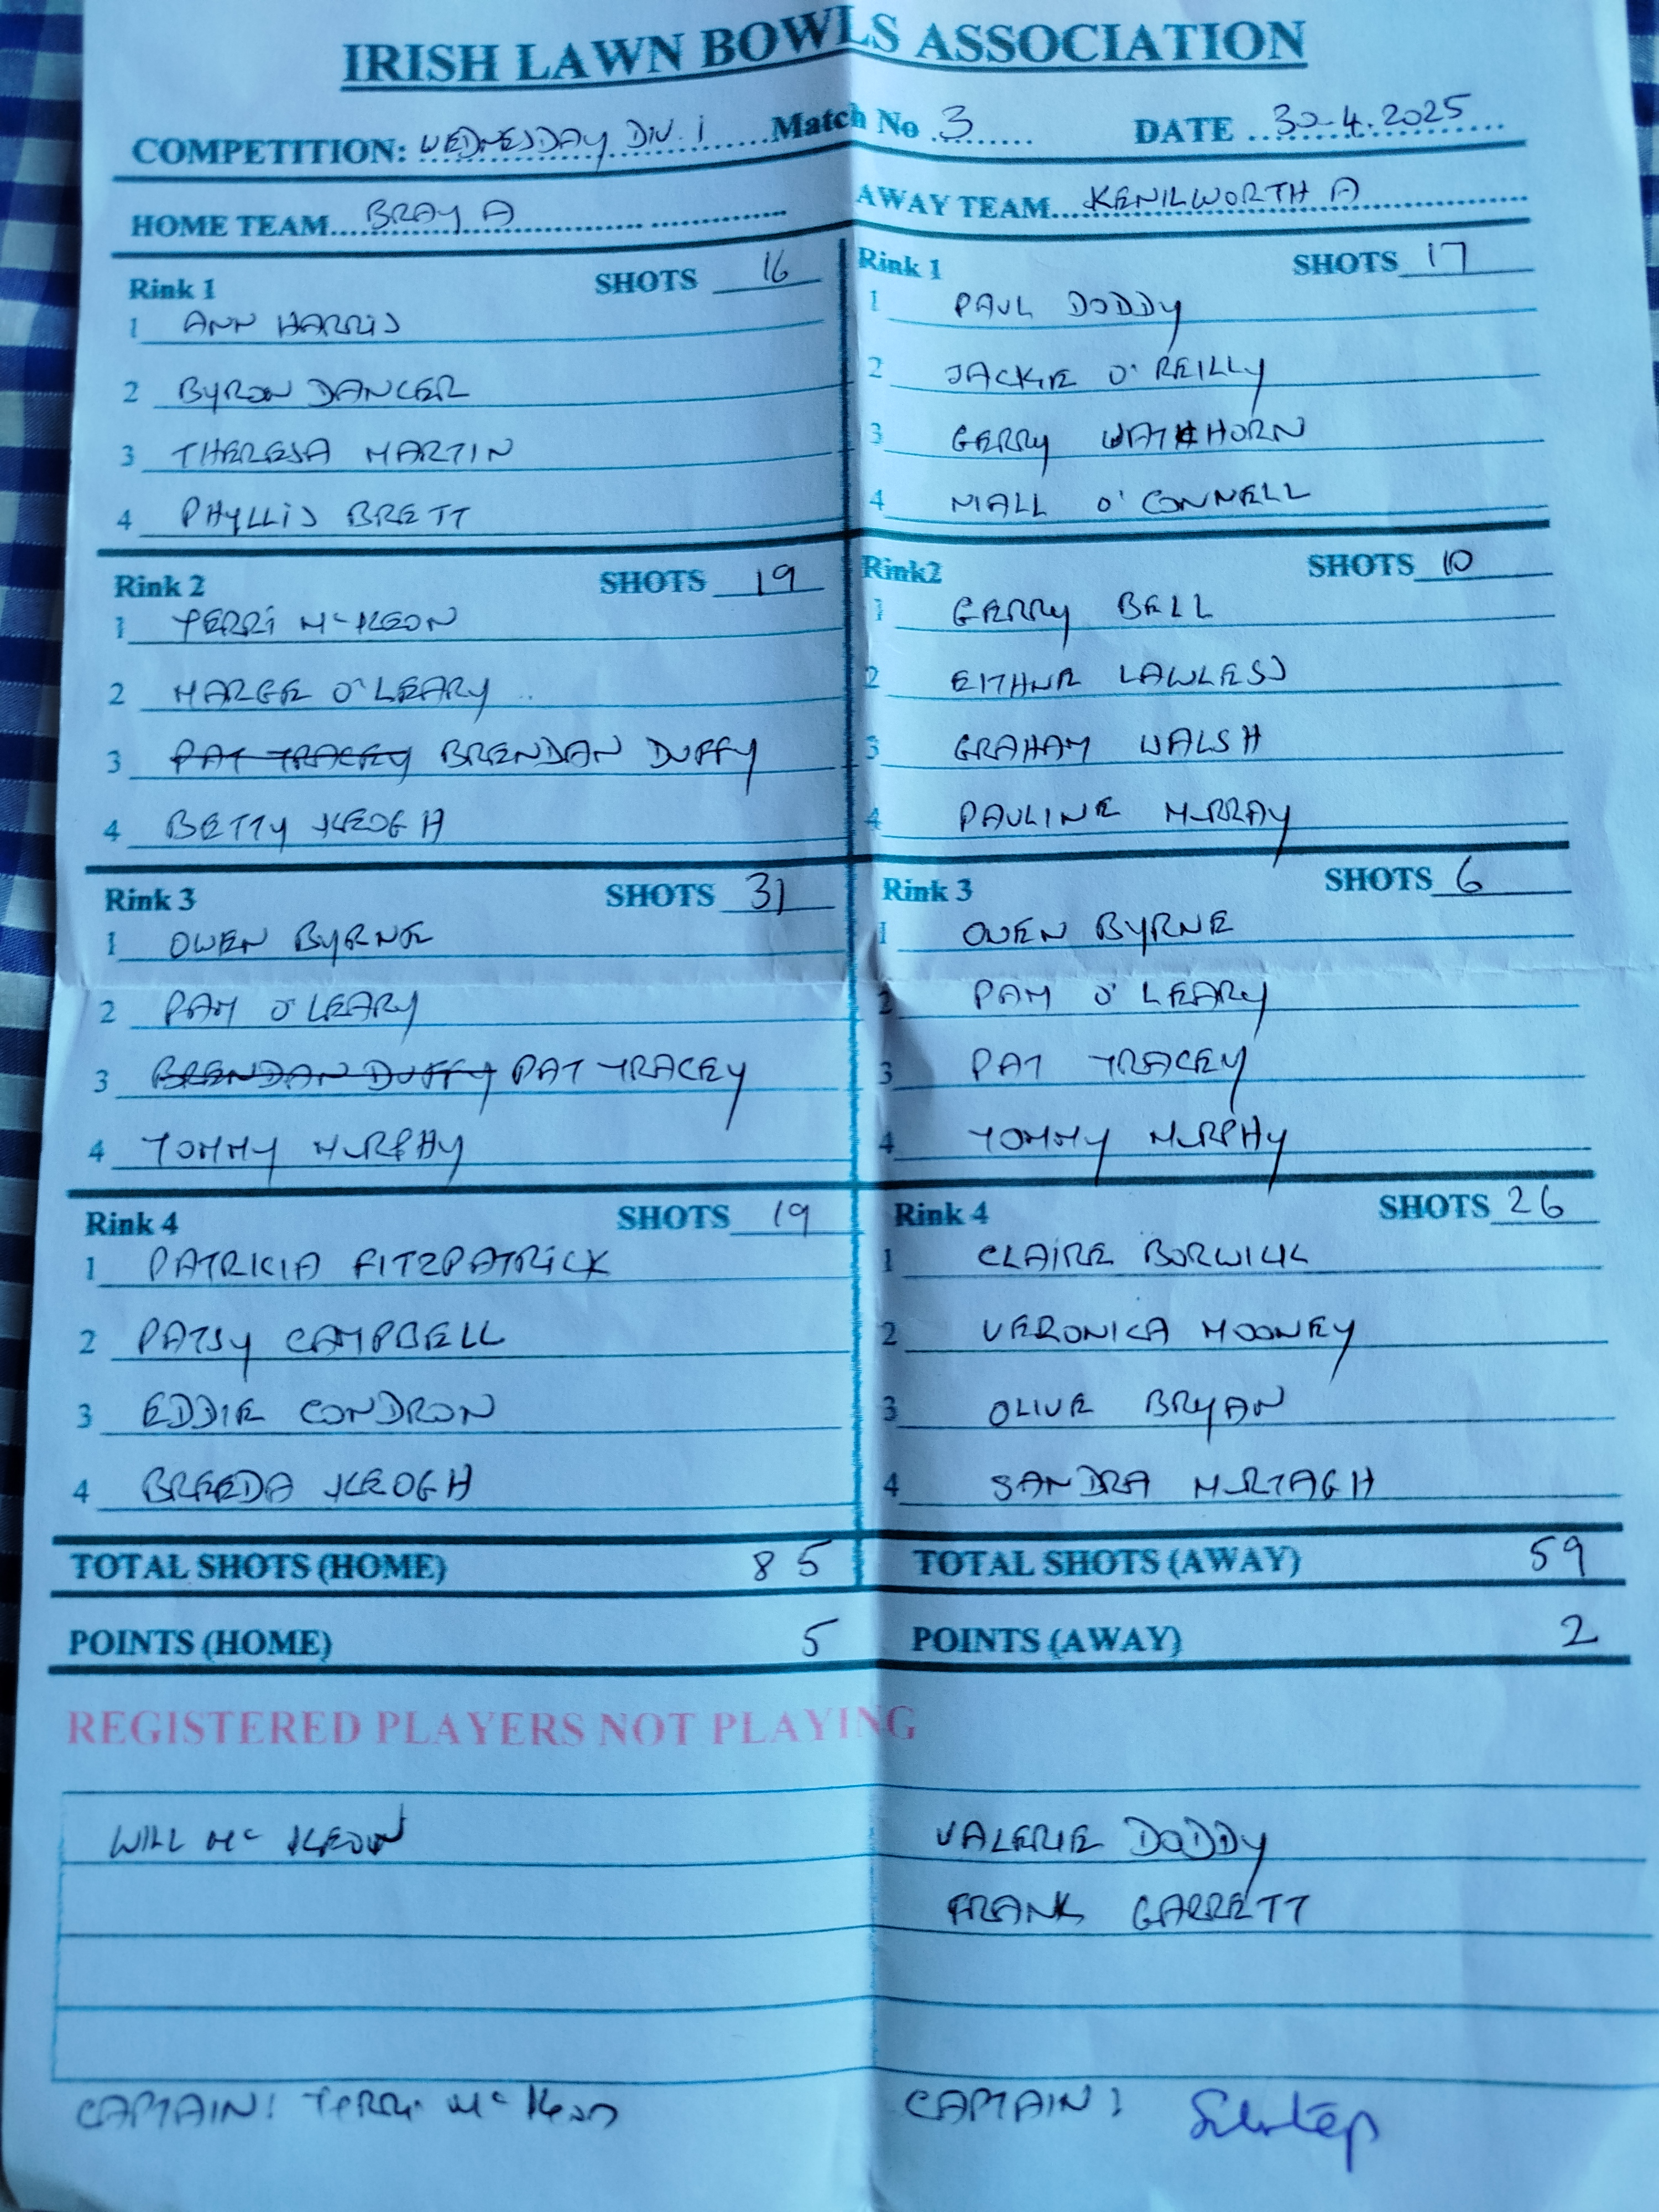 IRISH LAWN BOWLS ASSOCIATION
COMPETITION: WEDNESDAY DIV. 1 Match No 3 DATE 30-4.2025
HOME TEAM BRAY A AWAY TEAM KENILWORTH A
Rink 1 SHOTS 16
1 ANN HARRIS
2 BYRON DANCER
3 THERESA MARTIN
4 PHYLLIS BRETT
Rink 1 SHOTS 17
1 PAUL DODDY
2 JACKIE O'REILLY
3 GERRY
4 NIALL O'CONNELL
Rink 2 SHOTS 19
1 TERRI McKEON
2 MARGE O'LEARY
3 PAT TRACEY BRENDAN DUFFY
4 BETTY KEOGH
Rink2 SHOTS 10
1 GERRY BELL
2 EITHNE LAWLESS
3 GRAHAM WALSH
4 PAULINE MURRAY
Rink 3 SHOTS 31
1 OWEN BYRNE
2 PAM O'LEARY
3 BRENDAN DUFFY PAT TRACEY
4 TOMMY MURPHY
Rink 3 SHOTS 6
1 OWEN BYRNE
2 PAM O'LEARY
3 PAT TRACEY
4 TOMMY MURPHY
Rink 4 SHOTS 19
1 PATRICIA FITZPATRICK
2 PATSY CAMPBELL
3 EDDIE CONDRON
4 BREEDA KEOGH
Rink 4 SHOTS 26
1 CLAIRE BORWICK
2 VERONICA MOONEY
3 OLIVE BRYAN
4 SANDRA MURTAGH
TOTAL SHOTS (HOME) 85 TOTAL SHOTS (AWAY) 59
POINTS (HOME) 5 POINTS (AWAY) 2
REGISTERED PLAYERS NOT PLAYING
WILL Mc KEOWN VALERIE DODDY
FRANK GARRETT
CAPTAIN: TERRi Mc Keon CAPTAIN: